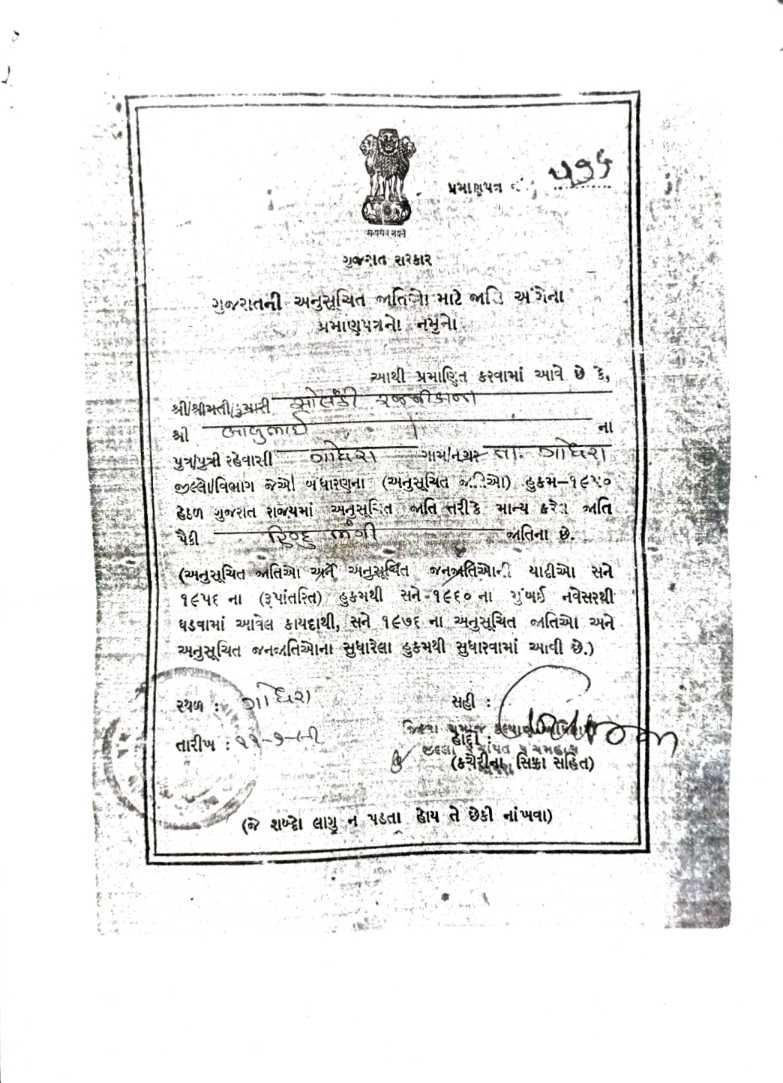 પ્રમાણપત્ર
ગુજરાત સરકાર
ગુજરાતની અનુસૂચિત જાતિઓ માટે જાતિ અંગેના
પ્રમાણપત્રનો નમૂનો
આથી પ્રમાણિત કરવામાં આવે છે કે,
શ્રી/શ્રીમતી/કુમારી સોલંકી રજનીકાન્ત
શ્રી બાબુભાઈ ના
પુત્ર/પુત્રી રહેવાસી ગોધરા ગામ/નગર તા. ગોધરા
જીલ્લો/વિભાગ જેઓ બંધારણના (અનુસૂચિત જાતિઓ) હુકમ-૧૯૫૦
હેઠળ ગુજરાત રાજ્યમાં અનુસૂચિત જાતિ તરીકે માન્ય કરેલ જાતિ
પૈકી હિન્દુ ભંગી જાતિના છે.
(અનુસૂચિત જાતિઓ અને અનુસૂચિત જનજાતિઓની યાદીઓ સને
૧૯૫૬ ના (રૂપાંતરિત) હુકમથી સને-૧૯૬૦ ના મુંબઈ નવેસરથી
ઘડવામાં આવેલ કાયદાથી, સને ૧૯૭૬ ના અનુસૂચિત જાતિઓ અને
અનુસૂચિત જનજાતિઓના સુધારેલા હુકમથી સુધારવામાં આવી છે.)
સ્થળ : ગોધરા સહી :
તારીખ : હોદ્દો :
(કચેરીના સિક્કા સહિત)
(જે શબ્દો લાગુ ન પડતા હોય તે છેકી નાંખવા)